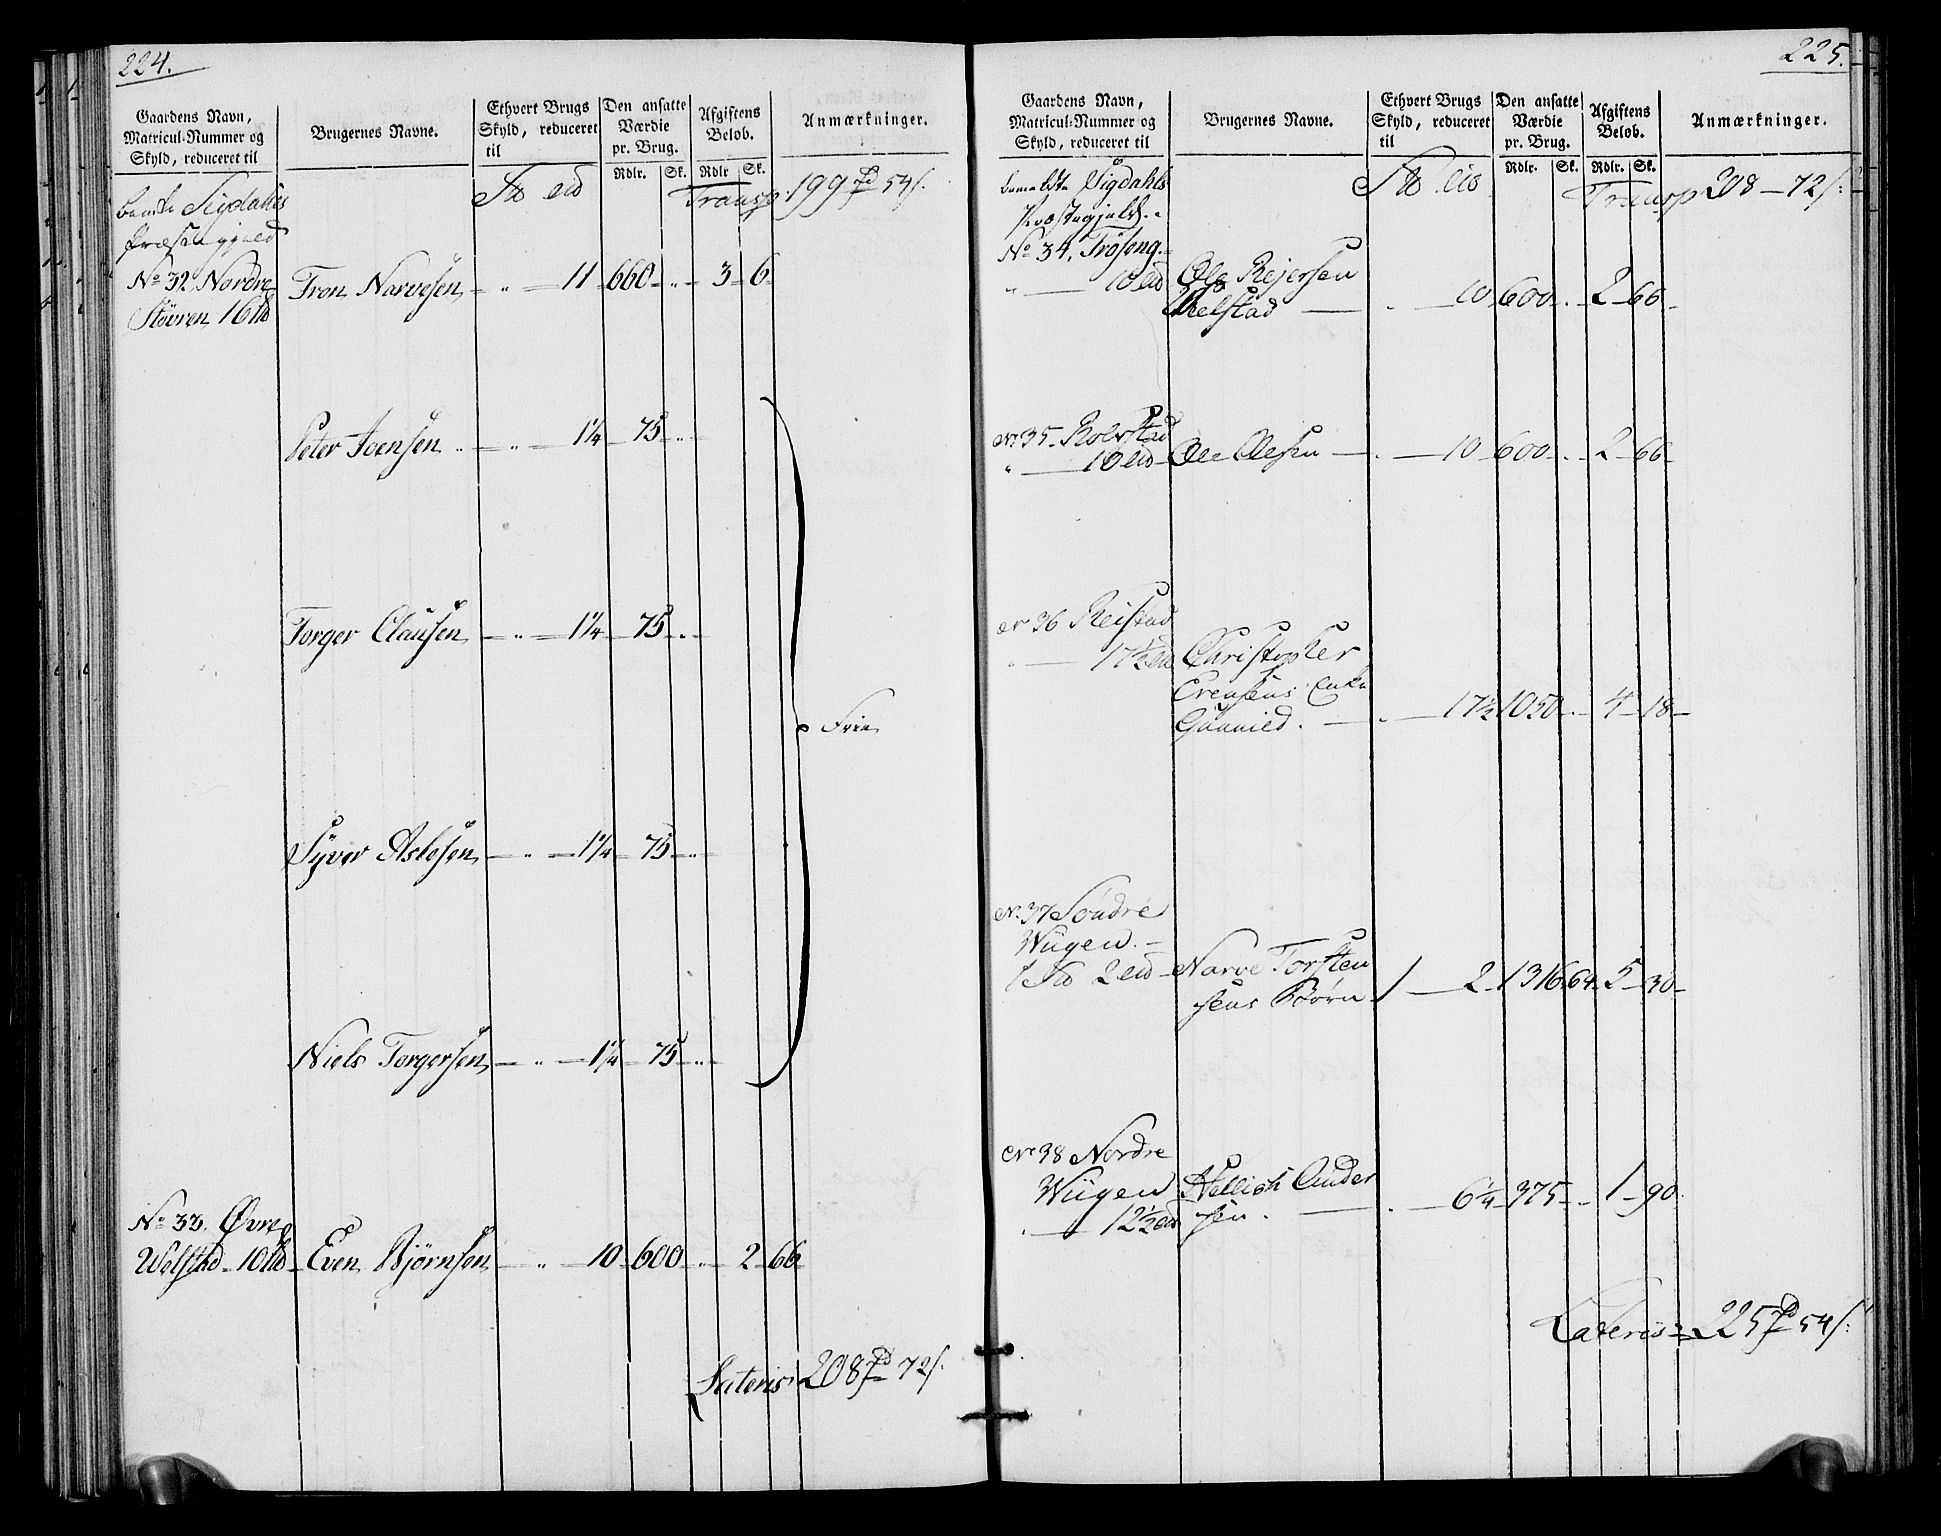 224.
Gaardens Navn,
Matricul-Nummer og
Skyld, reduceret til
Brugernes Navne.
Ethvert Brugs
Skyld, reduceret
til
Den ansatte
Værdie
pr. Brug.
Rdlr. Sk.
Afgiftens
Beløb.
Rdlr Sk.
Anmærkninger.
Sigdahls
Præstegjeld
Transp. 199 54 s.
No 32. Nordre
Støvren 16
Tron Narvesen 11 660 " 3 6
Peter Joensen " 1¼ 75 "
Torger Clausen " 1¼ 75 "
Syver Aslesen " 1¼ 75 "
Niels Torgersen " 1¼ 75 "
Frie
No 33. Øvre
Welstad 10
Even Bjørnsen " 10 600 " 2 66
Lateris 208 72 s.
225.
Gaardens Navn,
Matricul-Nummer og
Skyld, reduceret til
Brugernes Navne.
Ethvert Brugs
Skyld, reduceret
til
Den ansatte
Værdie
pr. Brug.
Rdlr. Sk.
Afgiftens
Beløb.
Rdlr. Sk.
Anmærkninger.
bemeldte Sigdahls
Præstegjeld.
Transp 208 - 72 s:
No 34. Trøseng.
" 10
Ole Rejersen
Welstad 10 600 2 66
No 35. Rolvstad
" 10
Ole Olesen 10 600 2 66
No 36 Reistad
" 17½
Christopher
Evensens Enke
Gunnild. 17½ 1050 4 18
No 37 Søndre
Wügen.
1 2
Narve Torsten
sens Børn 1 2 1316 64 5 30
No 38 Nordre
Wügen
12½
Hellich Ander
sen. 6¼ 375 1 90
Lateris 225 54 s: